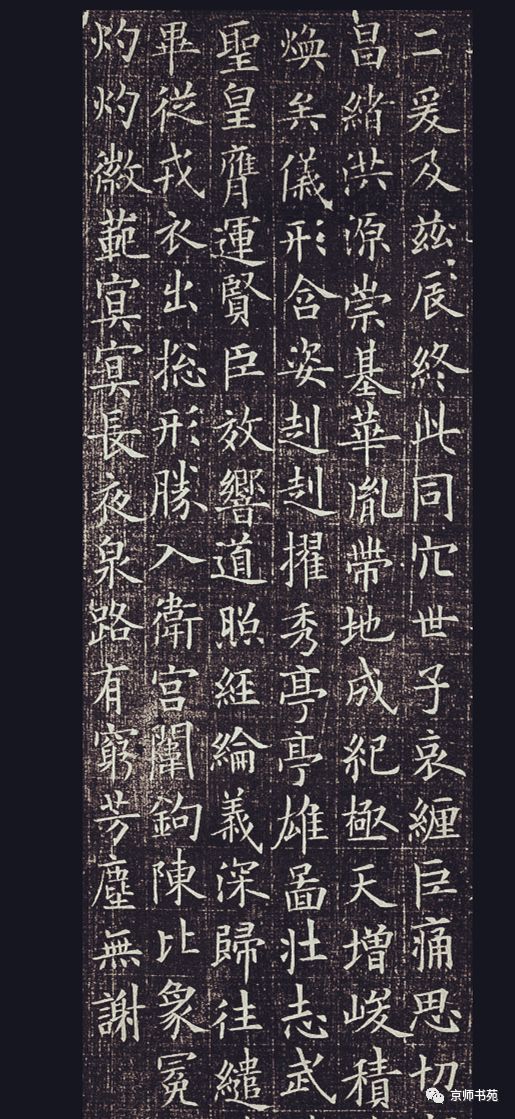 二爰及茲辰終此同穴世子哀纏巨痛思切
昌緒洪源崇基華胤帶地成紀極天增峻積
煥矣儀形含姿赳赳擢秀亭亭雄啚壯志武
聖皇膺運賢臣放響道照經綸義深歸往繾
畢從戎衣出摠形勝入衛宮闈鉤陳比象冥
灼灼徽範冥冥長夜泉路有窮芳塵無謝
京师书苑